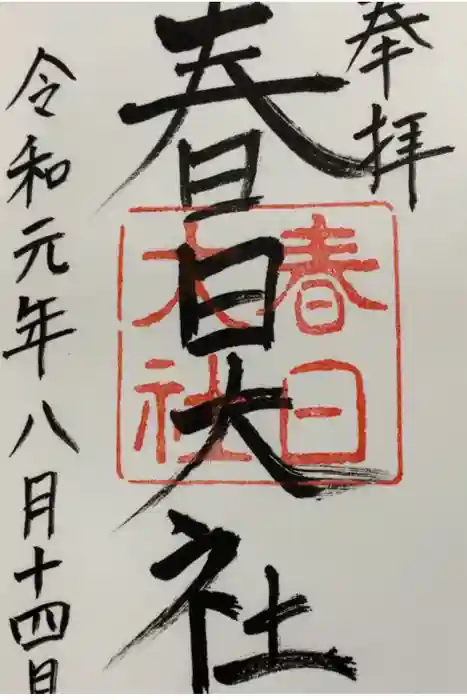 奉拝
春日大社
春日
大社
令和元年八月十四日